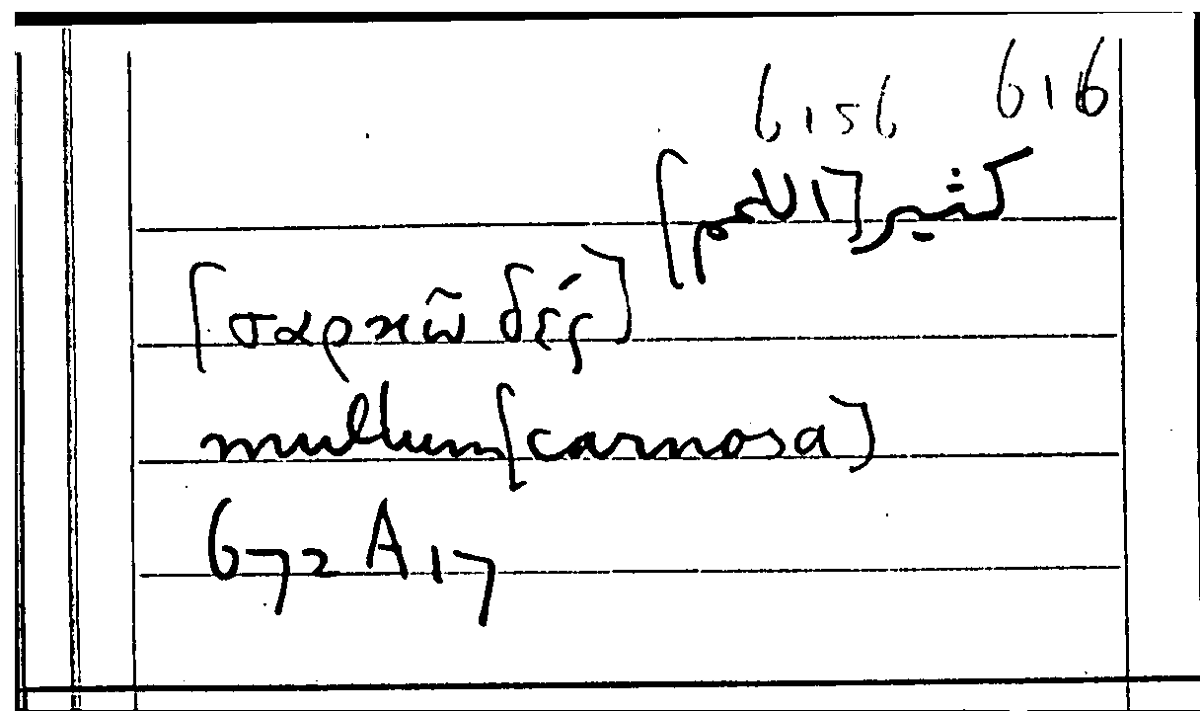 6156 616
كثير [اللحم]
[σαρκῶδές]
multum [carnosa]
672 A 17